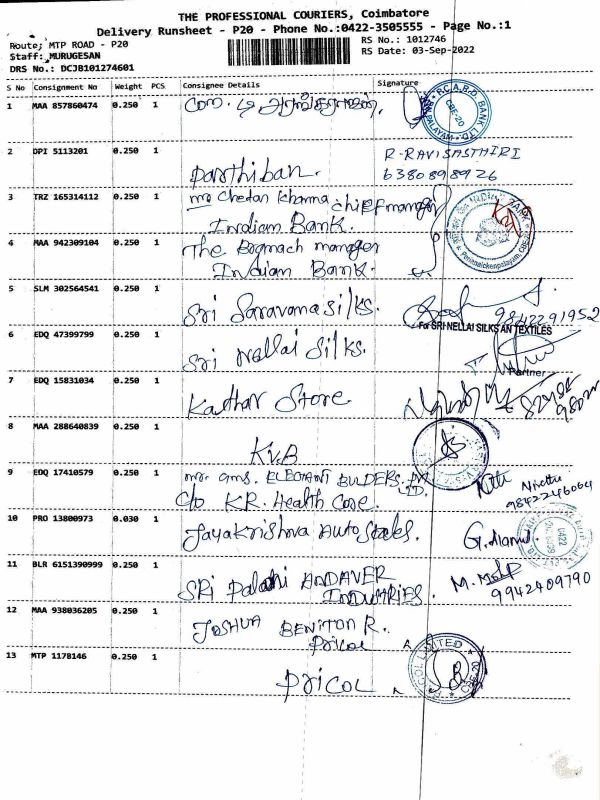 THE PROFESSIONAL COURIERS, Coimbatore
Delivery Runsheet - P20 - Phone No.:0422-3505555 - Page No.:1
Route; MTP ROAD - P20
RS No.: 1012746
Staff: MURUGESAN
RS Date: 03-Sep-2022
DRS No.: DCJB101274601
S No Consignment No Weight PCS Consignee Details Signature
1 MAA 857860474 0.250 1
P.C.A.R.D. BANK LTD.
CBE-20
2 DPI 5113201 0.250 1 Parthiban. R-RAVISASTHIRI
6380898926
3 TRZ 165314112 0.250 1 mr Chetan Khanna chief manager
Indian Bank.
4 MAA 942309104 0.250 1 The Bagnach manager
Indian Bank.
Perianaickenpalayam, CBE-20
5 SLM 302564541 0.250 1 Sri Saravana silks. 9842291952
For SRI NELLAI SILKS AN TEXTILES
6 EDQ 47399799 0.250 1 Sri Nellai Silks.
Partner
7 EDQ 15831034 0.250 1 Kathar Store
8 MAA 288640839 0.250 1 K.V.B
9 EDQ 17410579 0.250 1 mr. gms. ELEGANT BULDERS. PVT LTD.
C/o KR. Health Care. 9842246064
10 PRO 13800973 0.030 1 Jayakrishna Auto Sales. G.
11 BLR 6151390999 0.250 1 SRi Palani ANDAVER
INDUSTRIES. 9942409790
12 MAA 938036205 0.250 1 JOSHUA BENITON R.
Pricol
13 MTP 1178146 0.250 1 Pricol